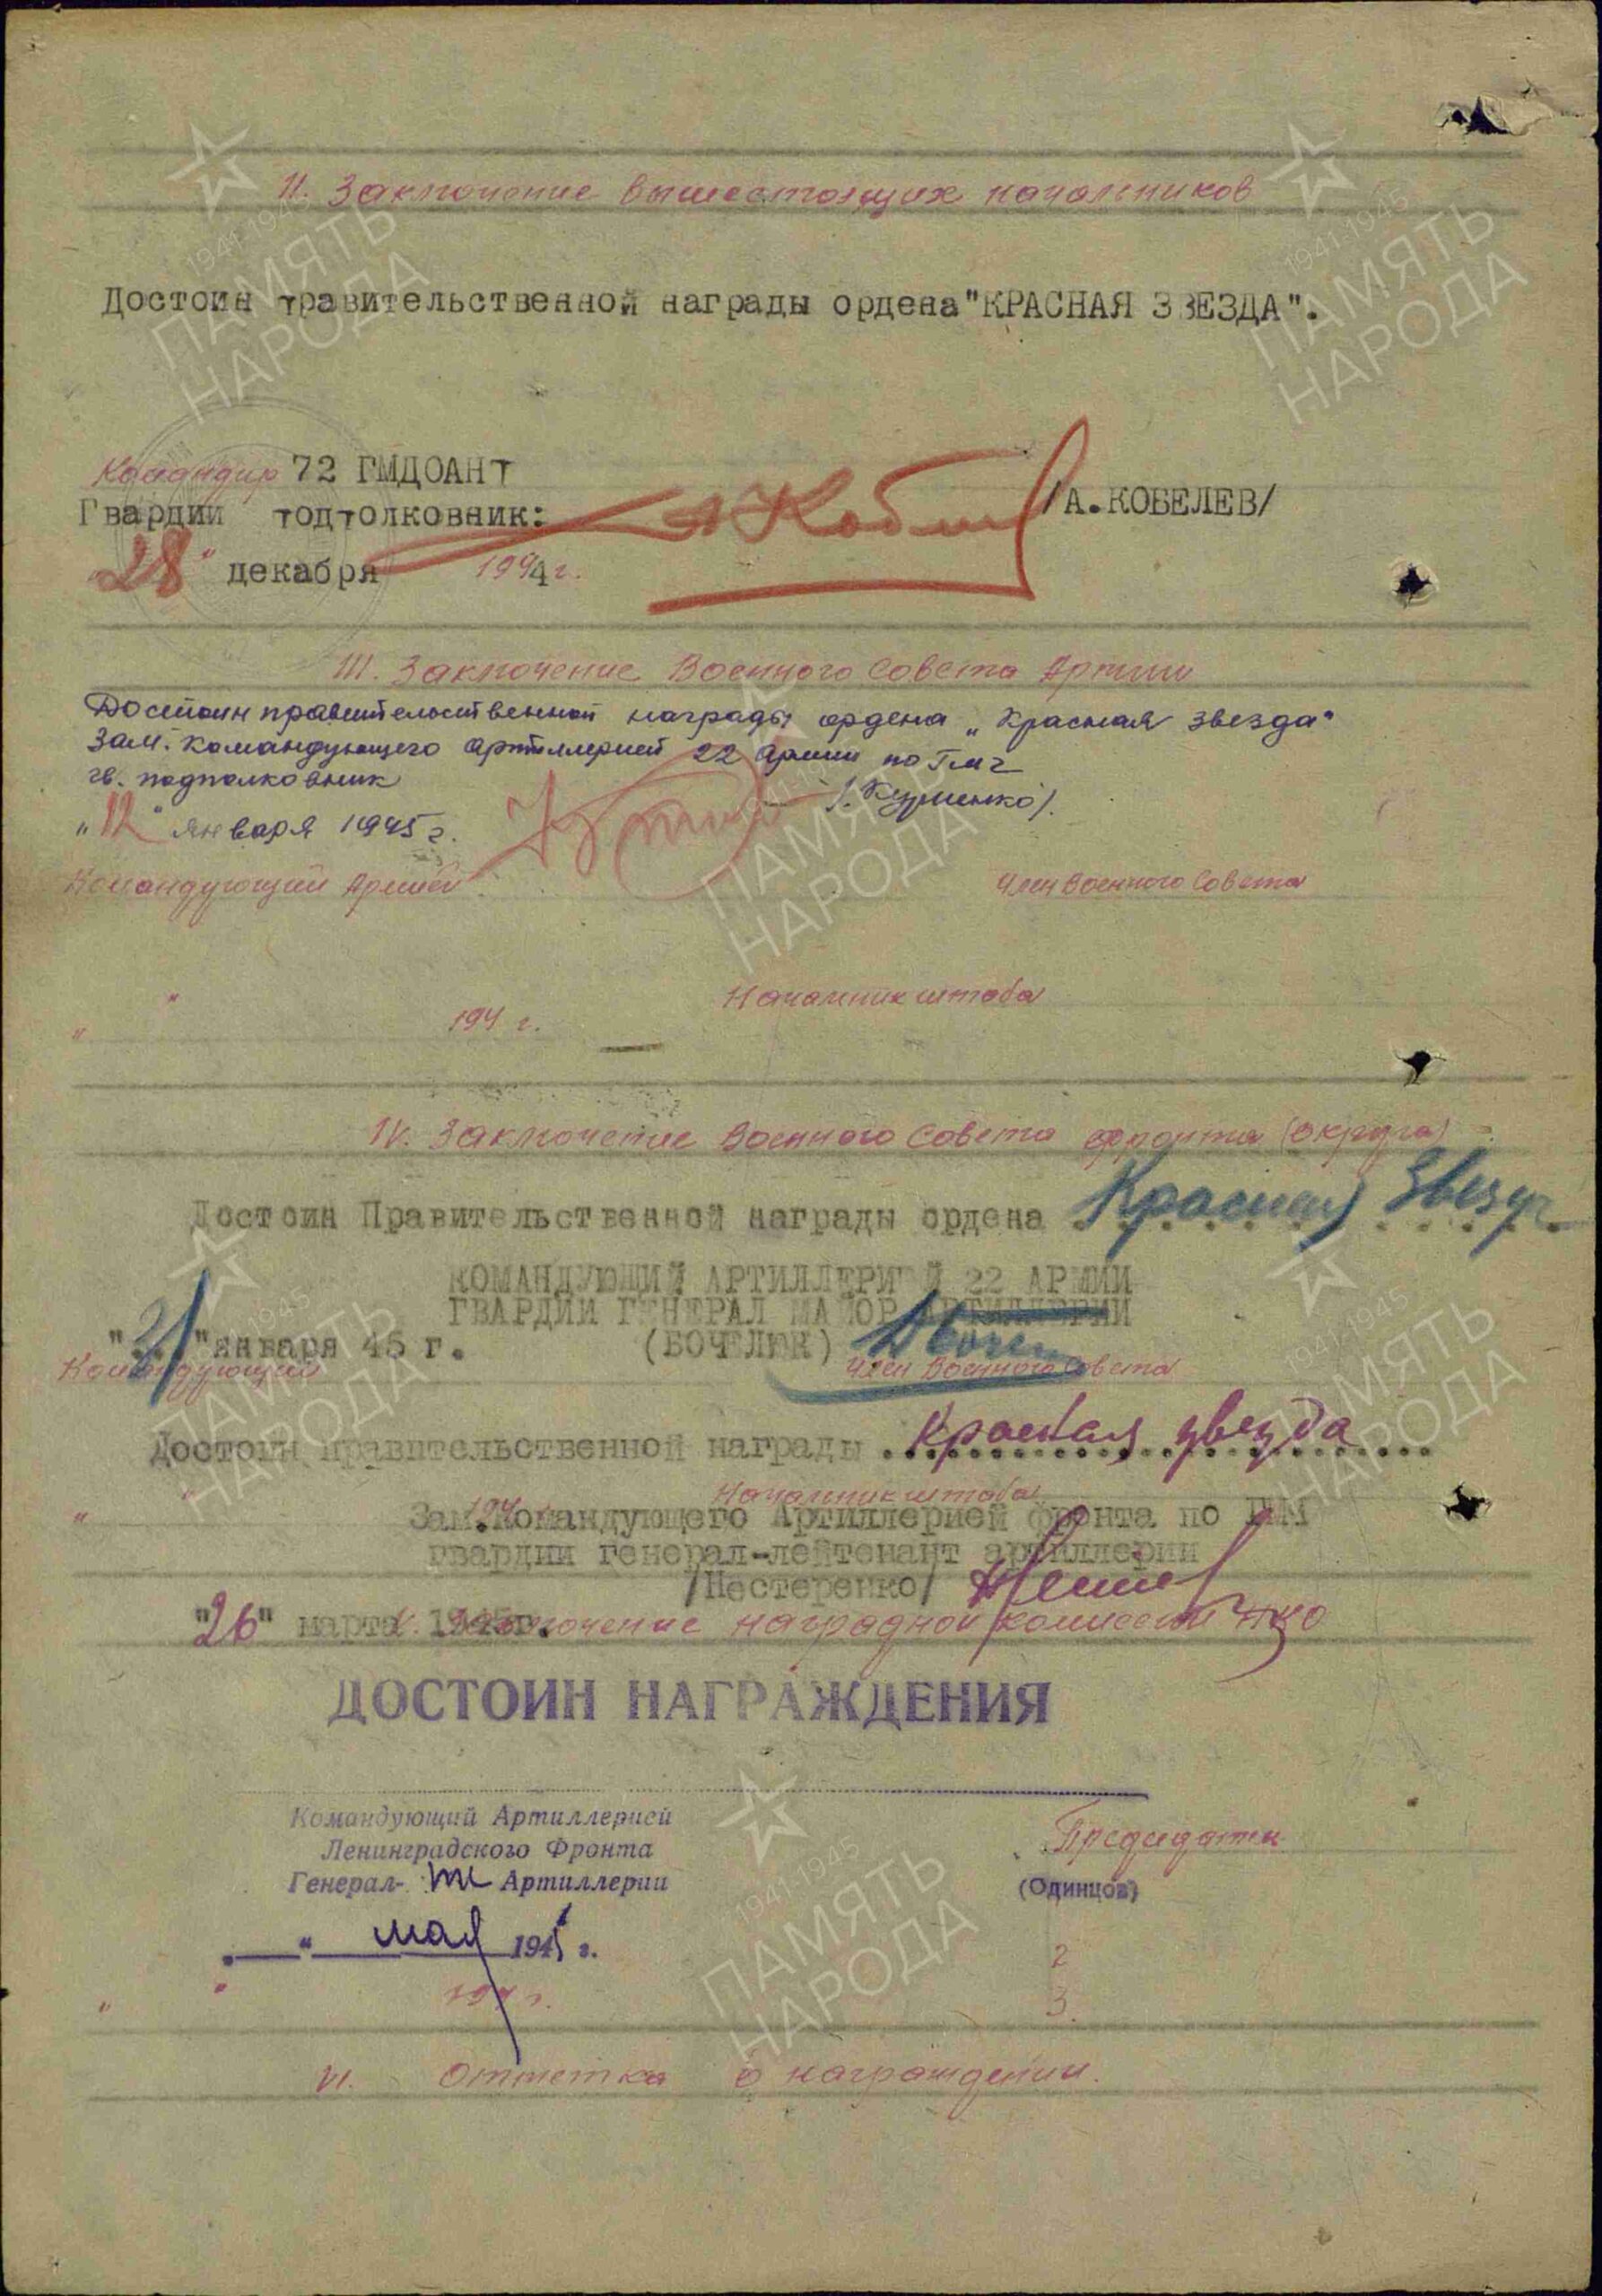 II. Заключение вышестоящих начальников
Достоин правительственной награды ордена "КРАСНАЯ ЗВЕЗДА".
Командир 72 ГМДОАНт
Гвардии подполковник: /А.КОБЕЛЕВ/
"28" декабря 1944 г.
III. Заключение Военного Совета Армии
Достоин правительственной награды ордена „Красная звезда“
Зам. командующего артиллерией 22 армии по ГМЧ
гв. подполковник
„12“ января 1945 г.
Командующий Армией Член Военного Совета
Начальник штаба
" " 194 г.
IV. Заключение Военного Совета фронта (округа)
Достоин Правительственной награды ордена Красная Звезда
КОМАНДУЮЩИЙ АРТИЛЛЕРИЕЙ 22 АРМИИ
ГВАРДИИ ГЕНЕРАЛ МАЙОР АРТИЛЛЕРИИ
"21" января 45 г. (БОЧЕЛЮК)
Командующий Член Военного Совета
Достоин правительственной награды Красная звезда
" " 194 Начальник штаба
Зам.Командующего Артиллерией фронта по
гвардии генерал-лейтенант артиллерии
/Нестеренко/
"26" марта 1945г.
V. Заключение наградной комиссии НКО
ДОСТОИН НАГРАЖДЕНИЯ
Командующий Артиллерией
Ленинградского Фронта
Генерал- Артиллерии
Председатель
(Одинцов)
„ “ мая 1945 г.
2
3.
" " 194 г.
VI. Отметка о награждении.
1941-1945
ПАМЯТЬ
НАРОДА